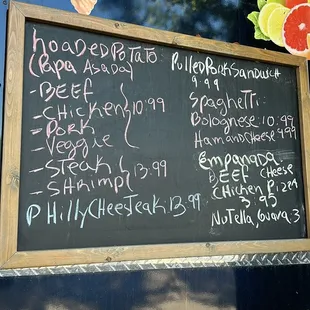 Loaded Potato
(Papa Asada)
- Beef
- Chicken 10.99
- Pork
- Veggie
- Steak 13.99
- Shrimp
Philly CheeSteak: 13.99
Pulled Pork Sandwich
9.99
Spaghetti:
Bolognese: 10.99
Ham and Cheese 9.99
Empanada
Beef Cheese
Chicken Pizza
3.95
Nutella, Guava: 3